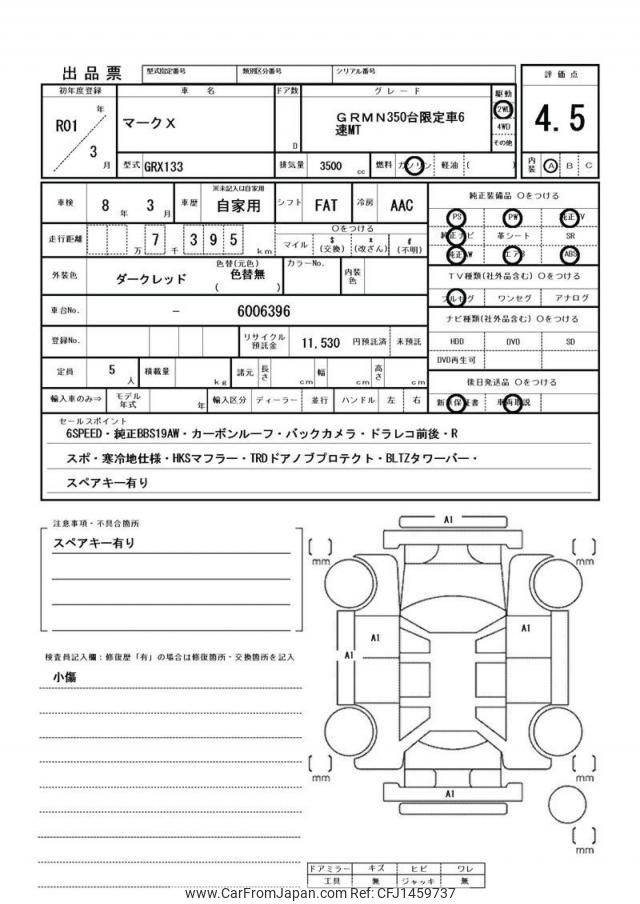 出品票 型式指定番号 類別区分番号 シリアル番号 評価点
初年度登録 車名 ドア数 グレード 駆動
R01 年 マークX D GRMN350台限定車6 2WD 4.5
速MT 4WD
3 月 その他
型式 GRX133 排気量 3500 cc 燃料 ガソリン 軽油 ( ) 内装 A B C
車検 8 年 3 月 車歴 ※未記入は自家用 自家用 シフト FAT 冷房 AAC
純正装備品 ○をつける
PS PW 純正TV
走行距離 万 7 千 3 9 5 km ○をつける
マイル $ (交換) x (改ざん) # (不明)
純正ナビ 革シート SR
純正AW エアB ABS
外装色 ダークレッド 色替(元色) 色替無 ( ) カラーNo. 内装色
TV種類(社外品含む) ○をつける
フルセグ ワンセグ アナログ
車台No. - 6006396
ナビ種類(社外品含む) ○をつける
登録No. リサイクル預託金 11,530 円預託済 未預託
HDD DVD SD
DVD再生可
定員 5 人 積載量 kg 諸元 長さ cm 幅 cm 高さ cm
後日発送品 ○をつける
輸入車のみ⇒ モデル年式 年 輸入区分 ディーラー 並行 ハンドル 左 右
新車保証書 車両取説
セールスポイント
6SPEED・純正BBS19AW・カーボンルーフ・バックカメラ・ドラレコ前後・R
スポ・寒冷地仕様・HKSマフラー・TRDドアノブプロテクト・BLTZタワーバー・
スペアキー有り
注意事項・不具合箇所
スペアキー有り
検査員記入欄：修復歴「有」の場合は修復箇所・交換箇所を記入
小傷
A1
[ ] mm
[ ] mm
A1
A1
A1
A1
[ ] mm
[ ] mm
A1
[ ] mm
ドアミラー キズ ヒビ ワレ
工具 無 ジャッキ 無
www.CarFromJapan.com Ref: CFJ1459737